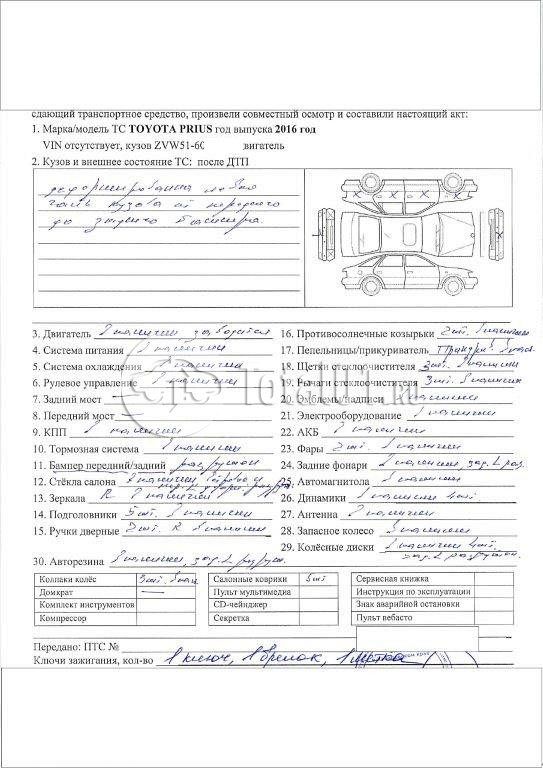 сдающий транспортное средство, произвели совместный осмотр и составили настоящий акт:
1. Марка/модель ТС TOYOTA PRIUS год выпуска 2016 год
VIN отсутствует, кузов ZVW51-6 вигатель
2. Кузов и внешнее состояние ТС: после ДТП
деформирована левая
часть кузова от переднего
до заднего бампера.
3. Двигатель В наличии заводится
4. Система питания В наличии
5. Система охлаждения В наличии
6. Рулевое управление В наличии
7. Задний мост —
8. Передний мост —
9. КПП В наличии
10. Тормозная система В наличии
11. Бампер передний/задний разрушен
12. Стёкла салона В наличии
13. Зеркала R В наличии
14. Подголовники 5шт. В наличии
15. Ручки дверные 2шт. R В наличии
16. Противосолнечные козырьки 2шт. В наличии
17. Пепельницы/прикуриватель Прикур.
18. Щетки стеклоочистителя 3шт. В наличии
19. Рычаги стеклоочистителя 3шт. В наличии
20. Эмблемы/надписи В наличии
21. Электрооборудование В наличии
22. АКБ В наличии
23. Фары 2шт. В наличии
24. Задние фонари В наличии, зад. L раз.
25. Автомагнитола В наличии
26. Динамики В наличии 4шт.
27. Антенна В наличии
28. Запасное колесо В наличии
29. Колёсные диски В наличии 4шт.
зад. L разрушен
30. Авторезина В наличии, зад. L разруш.
Колпаки колёс 3шт. Салонные коврики 5шт Сервисная книжка
Домкрат — Пульт мультимедиа Инструкция по эксплуатации
Комплект инструментов CD-чейнджер Знак аварийной остановки
Компрессор Секретка Пульт вебасто
Передано: ПТС №
Ключи зажигания, кол-во 1 ключ, 1 брелок, 1 метка